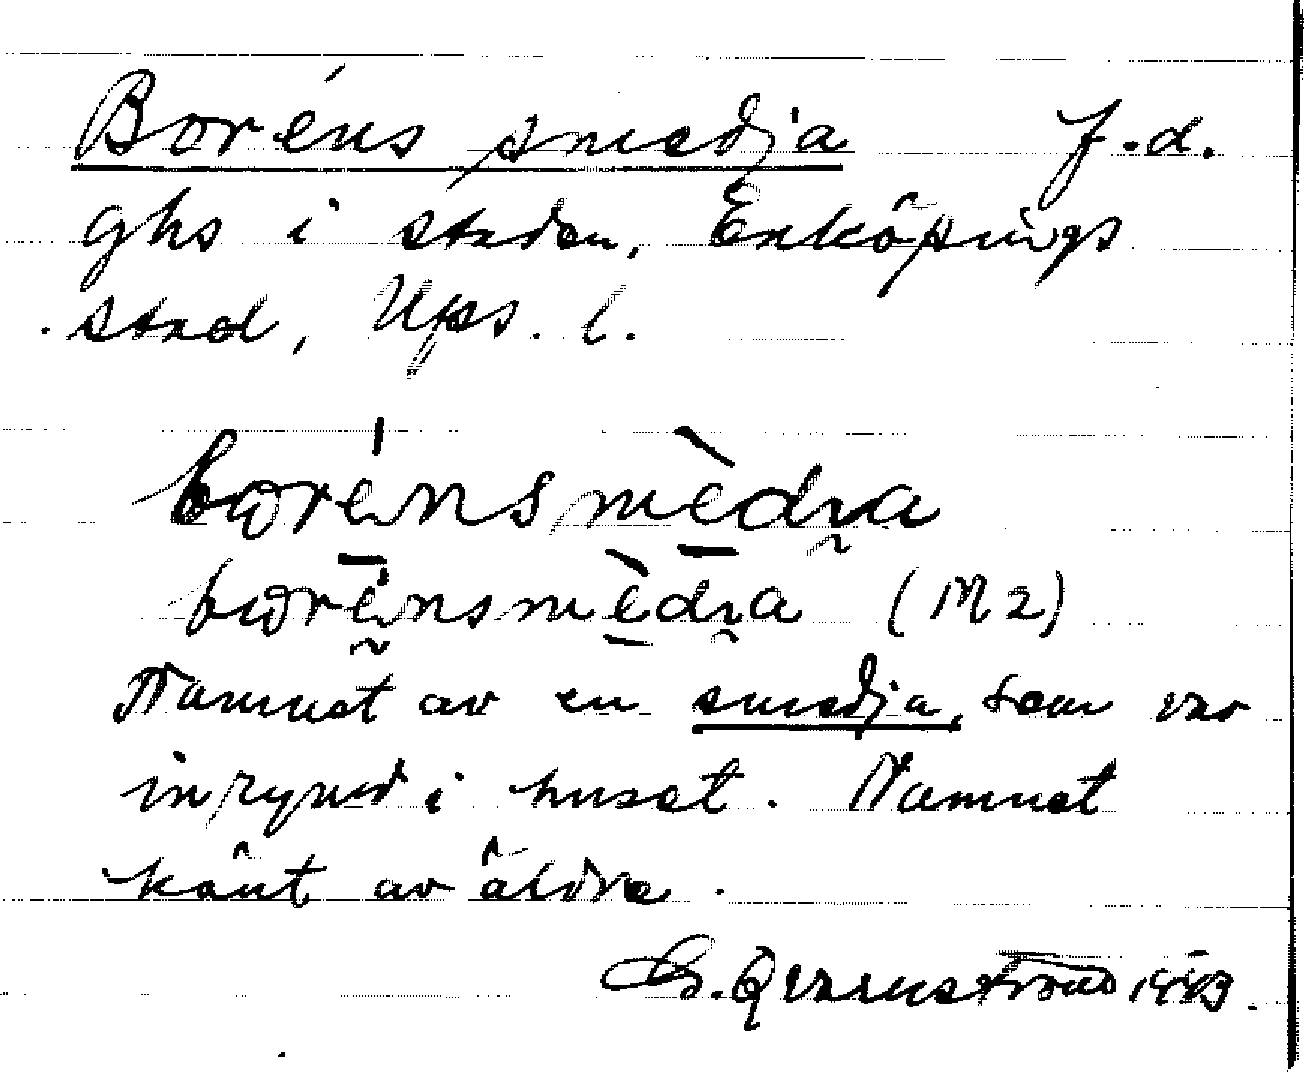 Boréns smedja f.d.
ghs i staden, Enköpings
stad, Ups. l.
borénsmèdıa
borénsmèdıa (M2)
Namnet av en smedja, som var
inrymd i huset. Namnet
känt av äldre.
G. Qvarnström